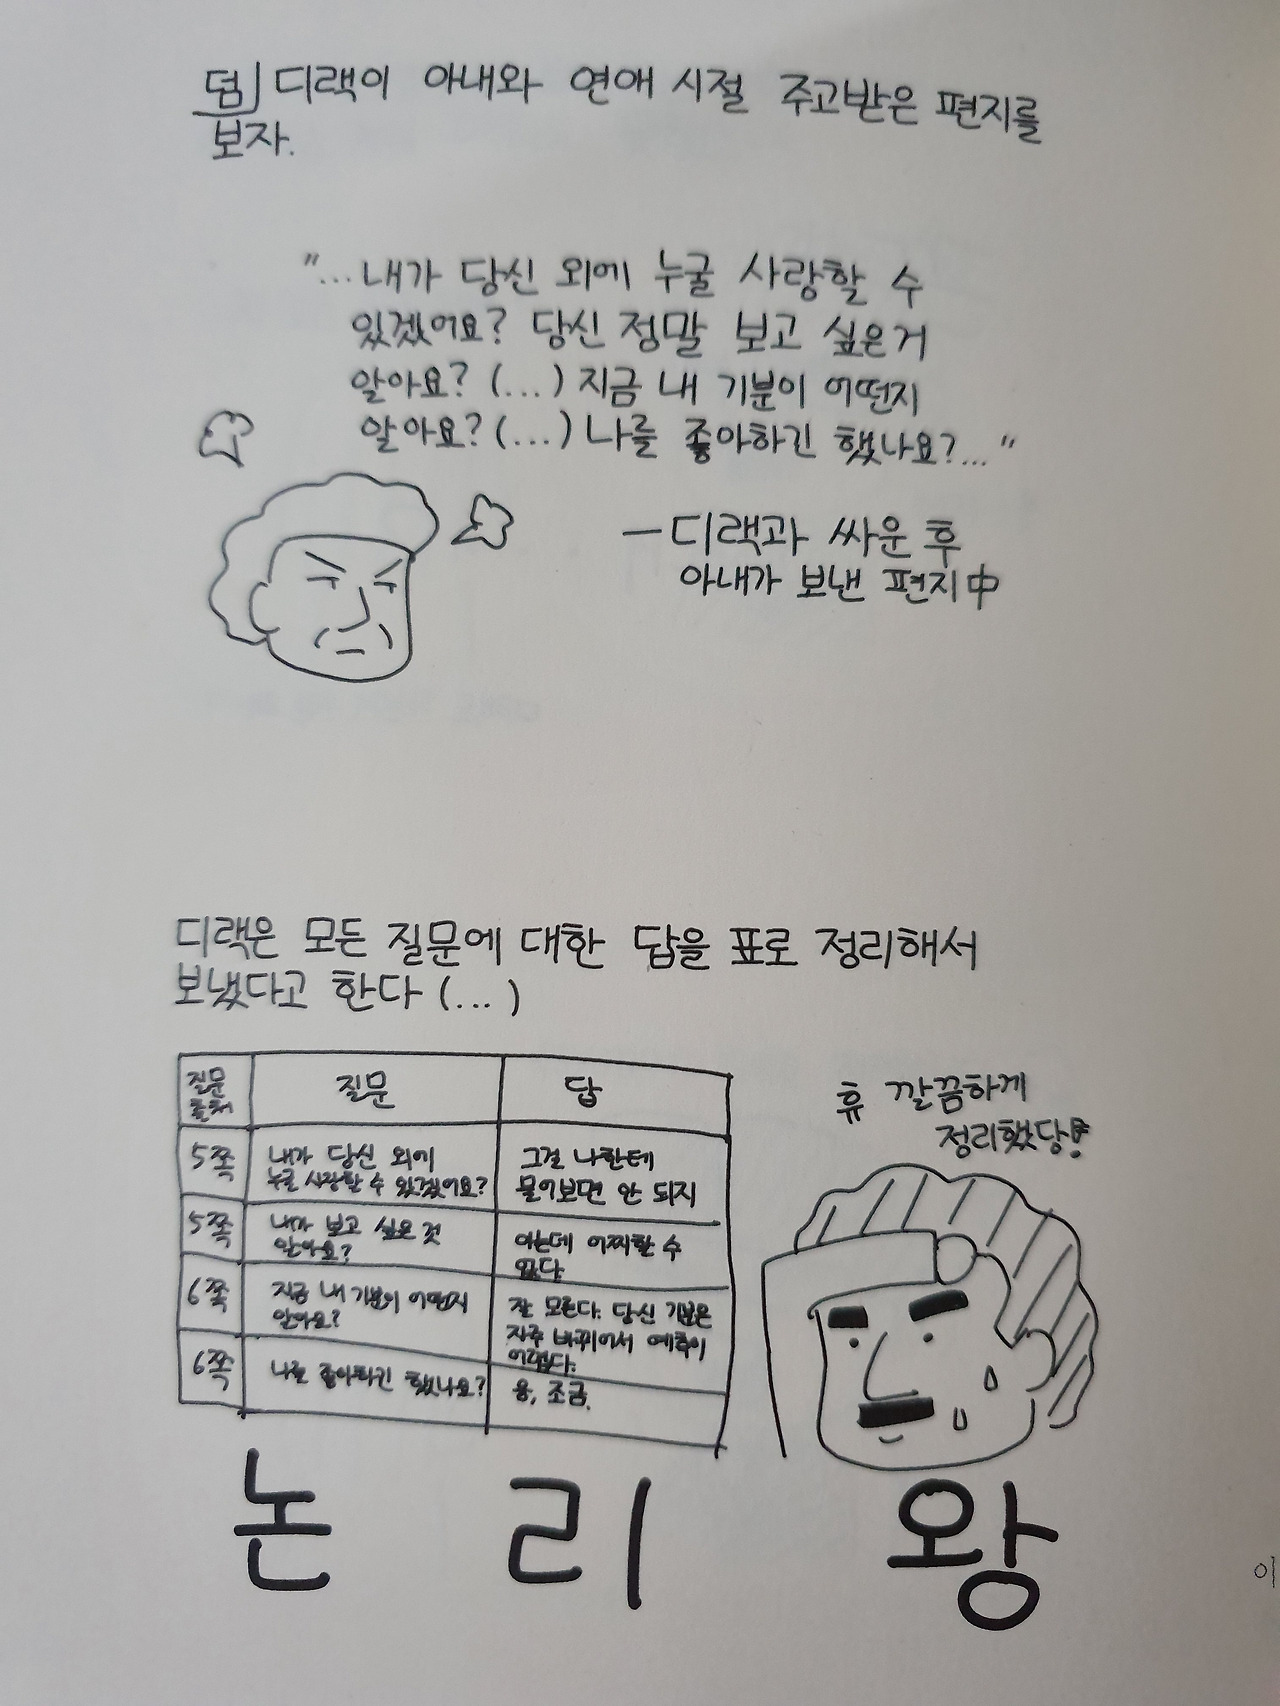 덤 디랙이 아내와 연애 시절 주고받은 편지를
보자.
"...내가 당신 외에 누굴 사랑할 수
있겠어요? 당신 정말 보고 싶은거
알아요? (...) 지금 내 기분이 어떤지
알아요? (...) 나를 좋아하긴 했나요?..."
— 디랙과 싸운 후
아내가 보낸 편지中
디랙은 모든 질문에 대한 답을 표로 정리해서
보냈다고 한다 (...)
질문
출처
질문
답
5쪽
내가 당신 외에
누굴 사랑할 수 있겠어요?
그걸 나한테
물어보면 안 되지
5쪽
내가 보고 싶은 것
알아요?
아는데 어찌할 수
없다
6쪽
지금 내 기분이 어떤지
알아요?
잘 모른다. 당신 기분은
자주 바뀌어서 예측이
어렵다.
6쪽
나를 좋아하긴 했나요?
응, 조금.
휴 깔끔하게
정리했당!
논 리 왕
이